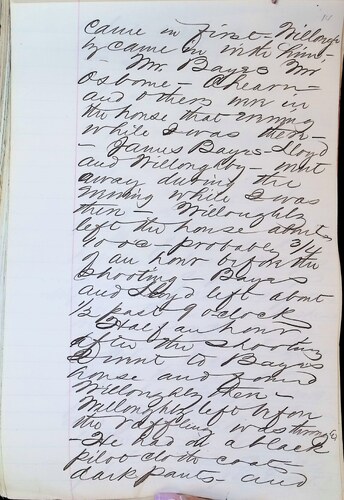 came in first - Willough
by came in with him -
- Mr. Bayes Mr
Osborne - Ahearn -
and others were in
the house that evening
while I was then -
- James Bayes - Lloyd
and Willoughby - went
away during the
evening while I was
then - Willoughby
left the house about
10 oc - probably 3/4
of an hour before the
shooting - Bayes
and Lloyd left about
1/2 past 9 oclock
Half an hour
after the shooting
I went to Bayes
house and found
Willoughby then -
Willoughby left before
the raffling was through
- He had on a black
pilot cloth coat -
dark pants - and